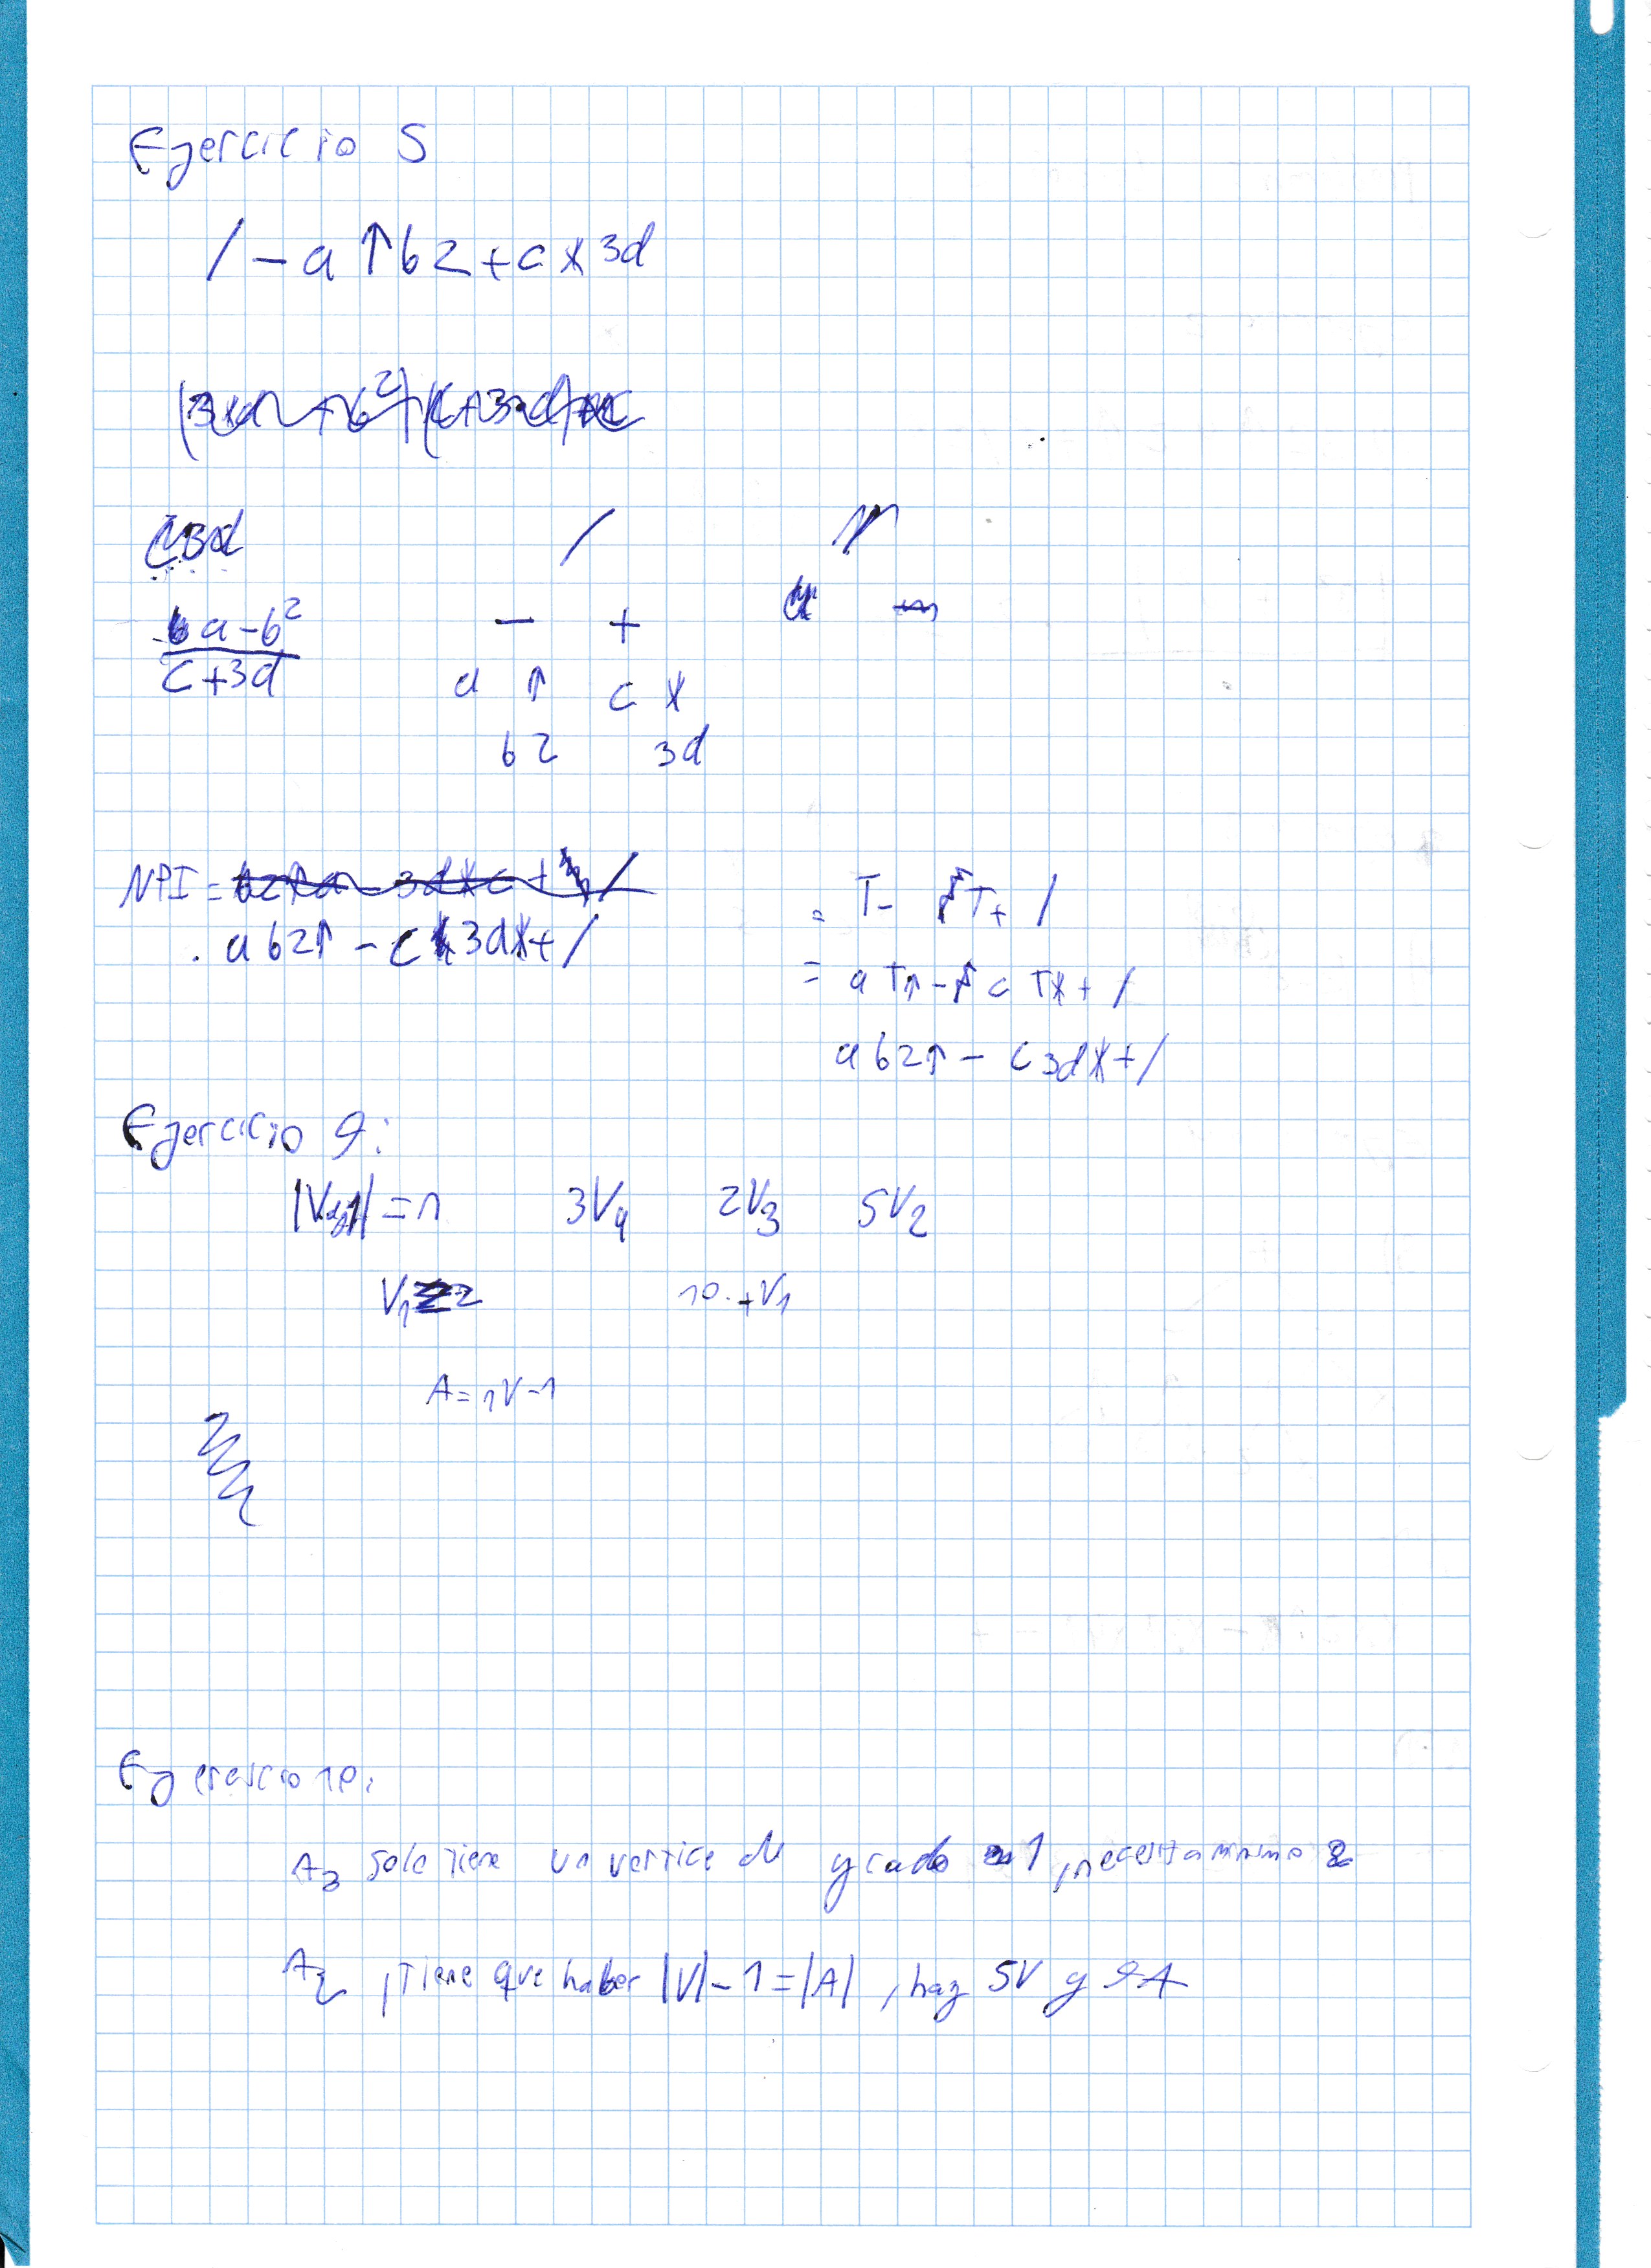 Ejercicio 5
/ - a ↑ b 2 + c * 3d
a - b²
c + 3d
/
- +
a ↑ c *
b 2 3d
NPI =
a b 2 ↑ - c 3 d * + /
= T - T + /
= a T ↑ - c T * + /
a b 2 ↑ - c 3 d * + /
Ejercicio 9:
= n 3V4 2V3 5V2
V1 2 10 + V1
A = nV - 1
Ejerescio 10:
A3 solo tiene un vertice de grado 1, necesita minimo 2
A2, tiene que haber |V| - 1 = |A|, hay 5V y 9A